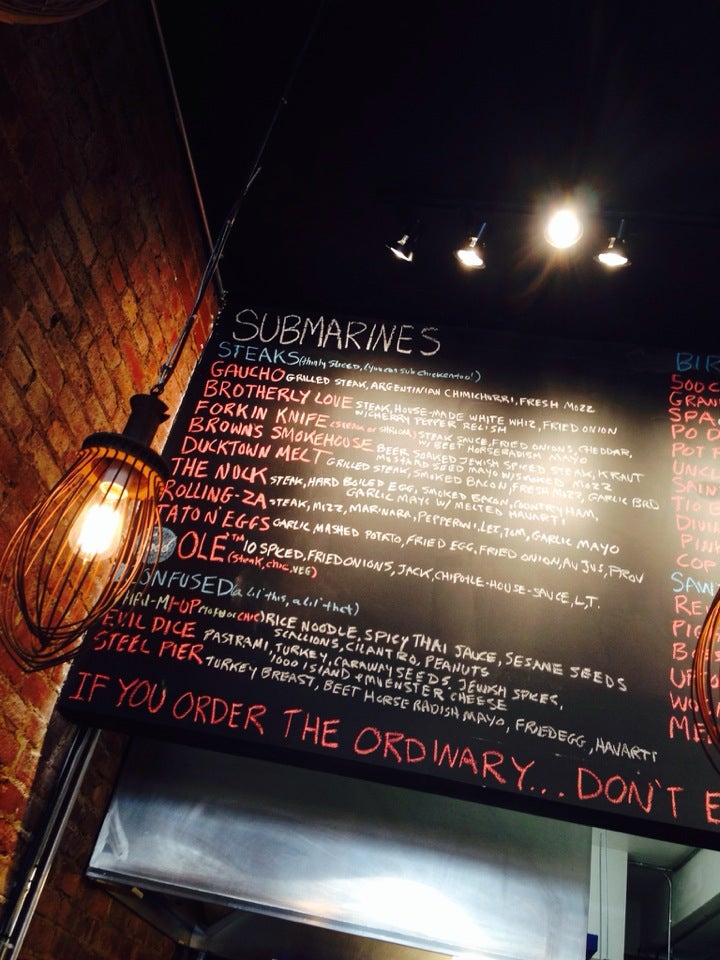 SUBMARINES
STEAKS (thinly sliced, (you can sub chicken too!)
GAUCHO GRILLED STEAK, ARGENTINIAN CHIMICHURRI, FRESH MOZZ
BROTHERLY LOVE STEAK, HOUSE-MADE WHITE WHIZ, FRIED ONION
W/CHERRY PEPPER RELISH
FORKIN KNIFE (STEAK or SHROOM) STEAK SAUCE, FRIED ONIONS, CHEDDAR,
W/ BEET HORSERADISH MAYO
BROWN'S SMOKEHOUSE BEER SOAKED JEWISH SPICED STEAK, KRAUT
MUSTARD SEED MAYO W/SMOKED MOZZ
DUCKTOWN MELT GRILLED STEAK, SMOKED BACON, FRESH MOZZ, GARLIC BRD
THE NUCK STEAK, HARD BOILED EGG, SMOKED BACON, COUNTRY HAM,
GARLIC MAYO W/ MELTED HAVARTI
ROLLING-ZA STEAK, MOZZ, MARINARA, PEPPERONI, LET, TOM, GARLIC MAYO
TATO N' EGGS GARLIC MASHED POTATO, FRIED EGG, FRIED ONION, AU JUS, PROV
OLE™ 10 SPICED, FRIED ONIONS, JACK, CHIPOTLE-HOUSE-SAUCE, L,T.
(Steak, chic, VEG)
ONFUSED (a lil' this, a lil' that)
MI-UP RICE NOODLE, SPICY THAI SAUCE, SESAME SEEDS
SCALLIONS, CILANTRO, PEANUTS
EVIL DICE PASTRAMI, TURKEY, CARAWAY SEEDS, JEWISH SPICES,
1000 ISLAND & MUENSTER CHEESE
STEEL PIER TURKEY BREAST, BEET HORSERADISH MAYO, FRIED EGG, HAVARTI
IF YOU ORDER THE ORDINARY... DON'T E
BIR
500 C
GRAN
SPA
PO D
POT R
UNCL
SAIN
TIO
DIVI
PINK
COP
SAW
RE
PIG
B
UP
WO
ME